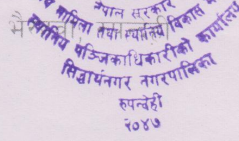 नेपाल सरकार
मामिला तथा स्थानीय विकास
स्थानीय पञ्जिकाधिकारीको कार्यालय
सिद्धार्थनगर नगरपालिका
रुपन्देही
२०४७